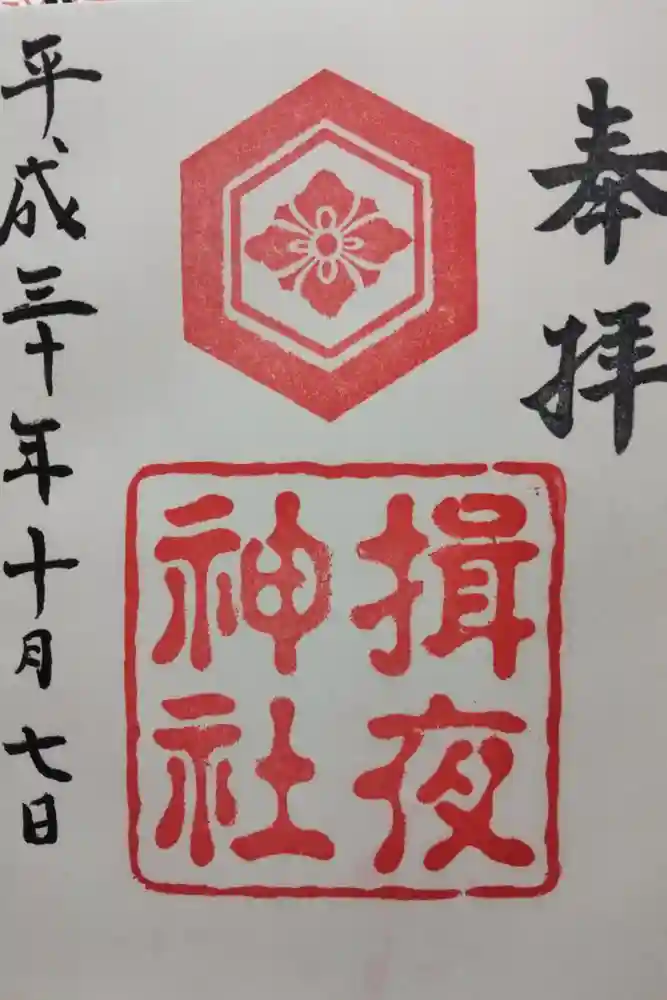 奉拝
揖夜
神社
平成三十年十月七日